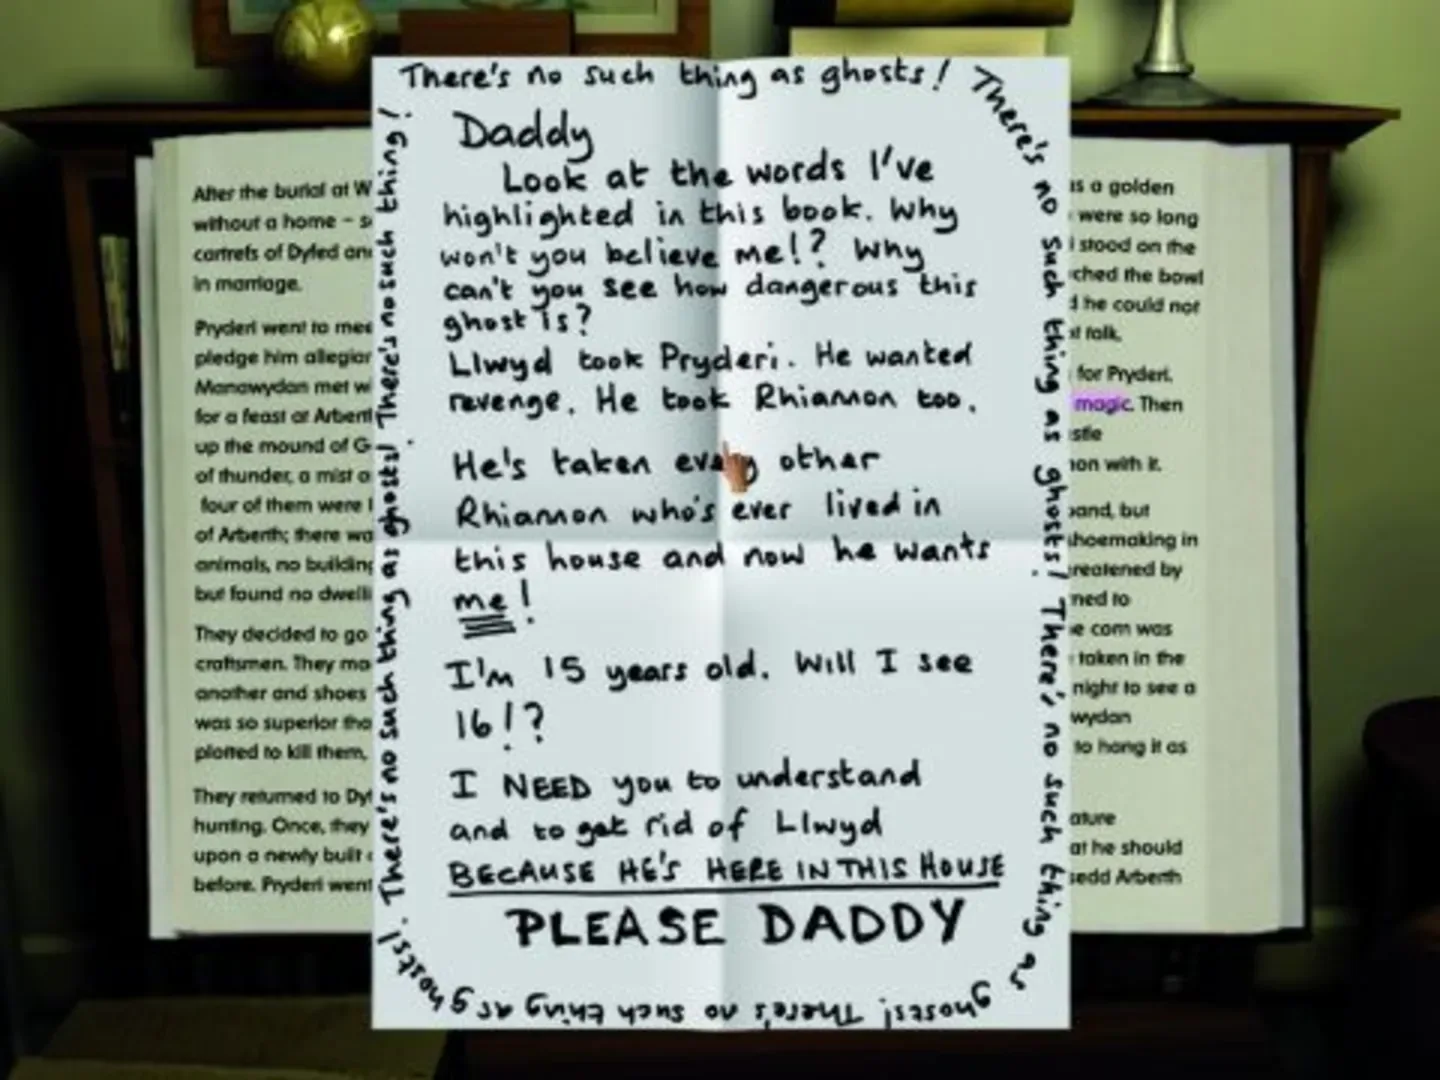 There's no such thing as ghosts! There's no such thing as ghosts! There's no such thing as ghosts! There's no such thing as ghosts!. There's no such thing as ghosts! There's no such thing!
Daddy
Look at the words I've
highlighted in this book. Why
won't you believe me!? Why
can't you see how dangerous this
ghost is?
Llwyd took Pryderi. He wanted
revenge. He took Rhiannon too.
He's taken every other
Rhiannon who's ever lived in
this house and now he wants
me!
I'm 15 years old. Will I see
16!?
I NEED you to understand
and to get rid of Llwyd
BECAUSE HE'S HERE IN THIS HOUSE
PLEASE DADDY
After the burial at W
without a home – s
cantrefs of Dyfed an
in marriage.
Pryderi went to mee
pledge him allegian
Manawydan met w
for a feast at Arbert
up the mound of G
of thunder, a mist a
four of them were l
of Arberth; there wa
animals, no building
but found no dwelli
They decided to go
craftsmen. They ma
another and shoes
was so superior tha
plotted to kill them,
They returned to Dyf
hunting. Once, they
upon a newly built c
before. Pryderi went
as a golden
were so long
stood on the
ched the bowl
d he could not
t talk.
for Pryderi.
magic. Then
stle
on with it.
band, but
shoemaking in
reatened by
ned to
e corn was
taken in the
night to see a
wydan
to hang it as
ature
at he should
sedd Arberth